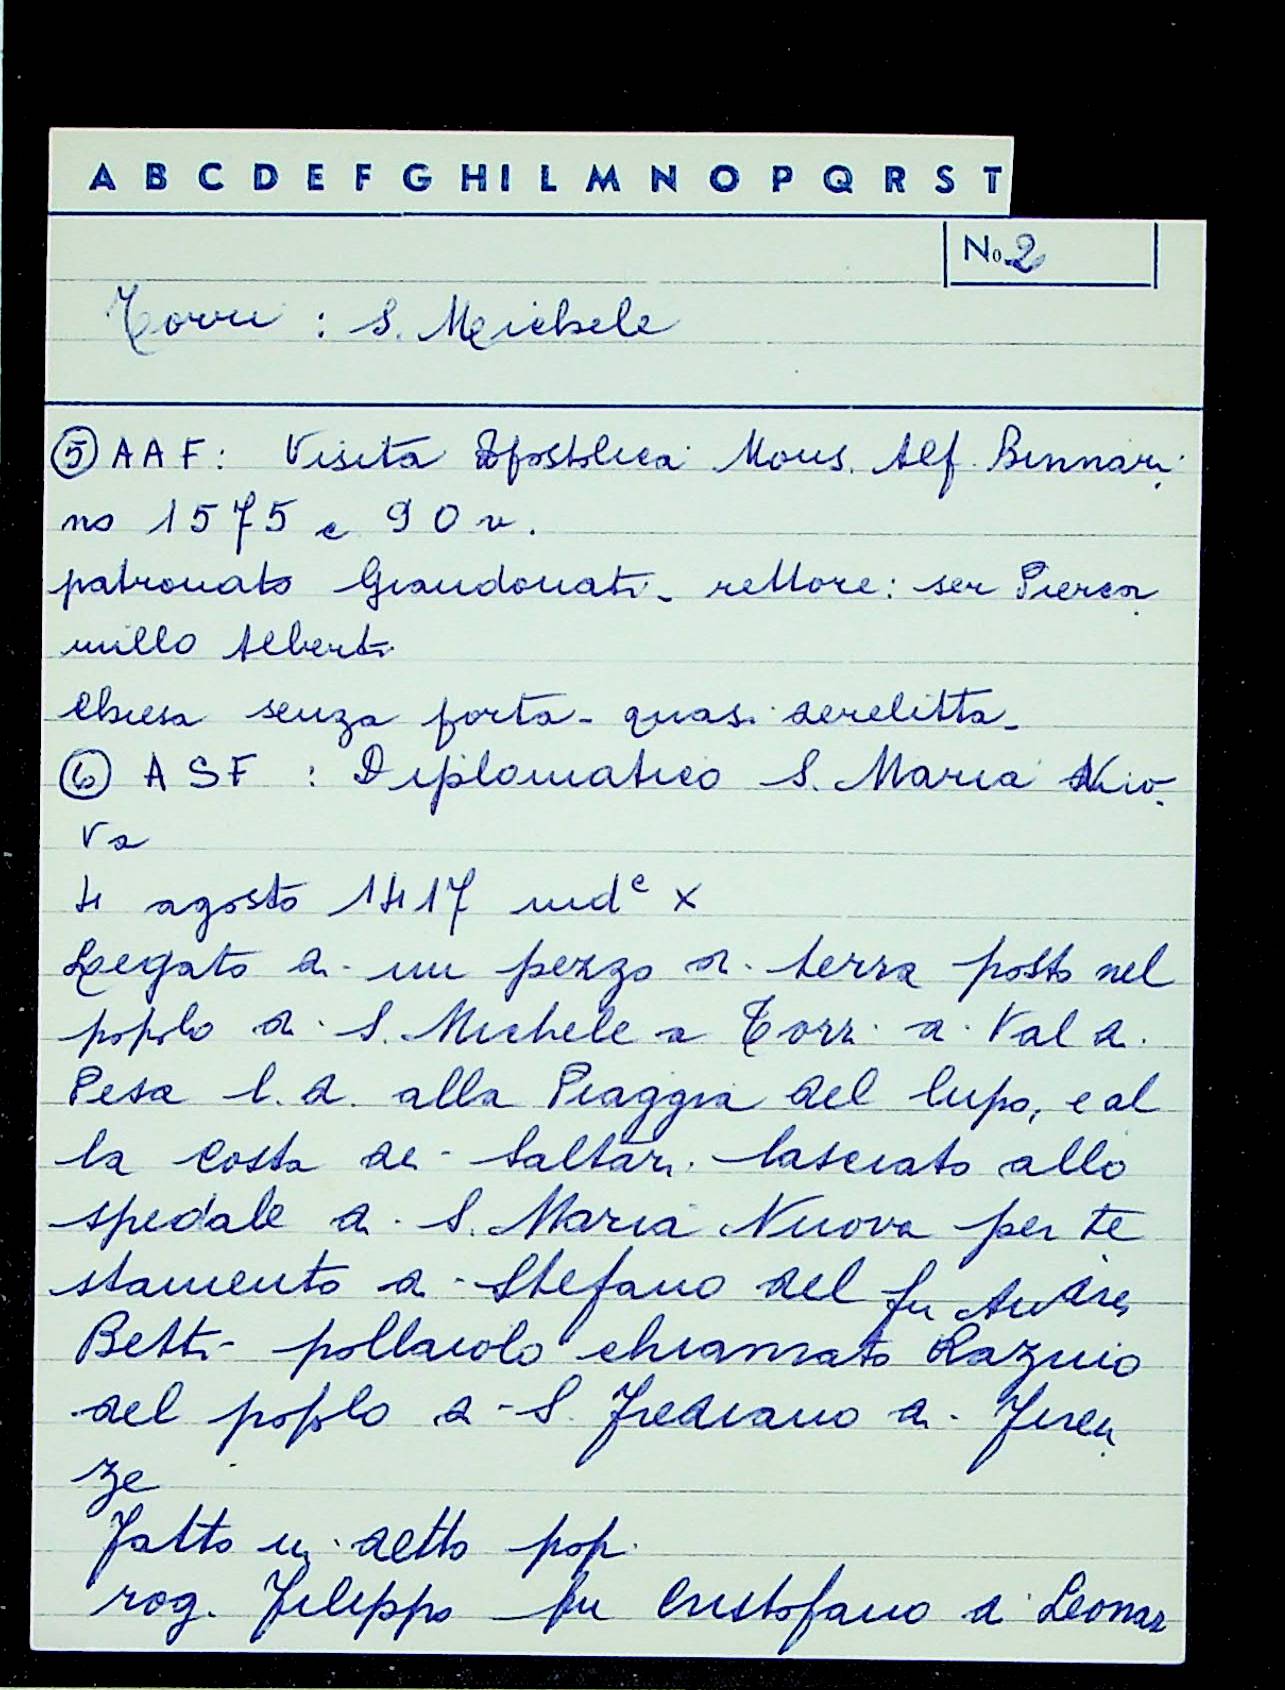 A B C D E F G H I L M N O P Q R S T
No. 2
Torri : S. Michele
⑤ A A F : Visita Apostolica Mons. Alf. Binnari
no 1575 c 90 v.
patronato Giandonati - rettore : ser Pierca
millo Alberti
Chiesa senza porta - quasi derelitta -
⑥ A S F : Diplomatico S. Maria Nuo
va
4 agosto 1417 indᵉ X
Legato di un pezzo di terra posto nel
popolo di S. Michele a Torri di Val di
Pesa l. d. alla Piaggia del lupo, e al
la Costa de' Saltari lasciato allo
spedale di S. Maria Nuova per te
stamento di Stefano del fu Andrea
Betti pollaiolo chiamato
del popolo di S. Frediano di Firen
ze
Fatto in detto pop.
rog. Filippo fu Cristofano di Leonar